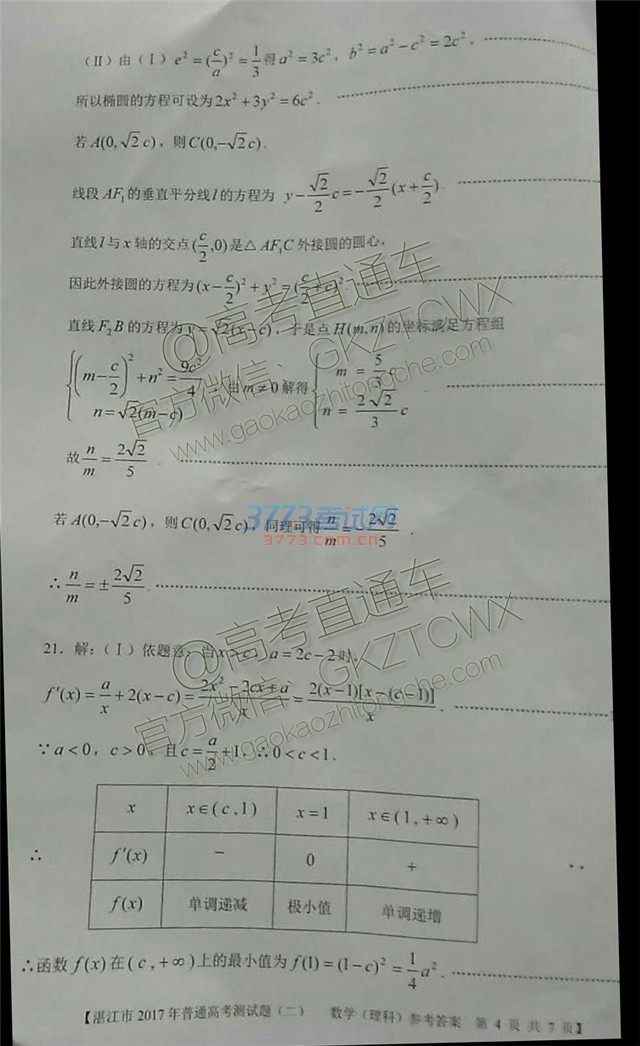 (Ⅱ) 由(Ⅰ) e² = (c/a)² = 1/3 得 a² = 3c², b² = a² − c² = 2c²,
所以椭圆的方程可设为 2x² + 3y² = 6c².
若 A(0, √2 c), 则 C(0, −√2 c).
线段 AF₁ 的垂直平分线 l 的方程为 y − √2/2 c = −√2/2 (x + c/2).
直线 l 与 x 轴的交点 (c/2, 0) 是 △AF₁C 外接圆的圆心,
因此外接圆的方程为 (x − c/2)² + y² = (c/2 + c)².
直线 F₂B 的方程为 y = √2(x − c), 于是点 H(m, n) 的坐标满足方程组
{ (m − c/2)² + n² = 9c²/4, n = √2(m − c) 由 m ≠ 0 解得 { m = 5/3 c, n = 2√2/3 c
故 n/m = 2√2/5
若 A(0, −√2 c), 则 C(0, √2 c), 同理可得 n/m = −2√2/5
∴ n/m = ± 2√2/5.
21. 解: (Ⅰ) 依题意, 当 x > c, a = 2c − 2 时,
f′(x) = a/x + 2(x − c) = (2x² − 2cx + a)/x = 2(x − 1)[x − (c − 1)]/x.
∵ a < 0, c > 0, 且 c = a/2 + 1, ∴ 0 < c < 1.
x x∈(c, 1) x = 1 x∈(1, +∞)
∴ f′(x) − 0 +
f(x) 单调递减 极小值 单调递增
∴ 函数 f(x) 在 (c, +∞) 上的最小值为 f(1) = (1 − c)² = 1/4 a².
【湛江市 2017 年普通高考测试题(二) 数学(理科)参考答案 第 4 页 共 7 页】
@高考直通车
官方微信: GKZTCWX
www.gaokaozhitongche.com
3773考试网
3773.com.cn
@高考直通车
官方微信: GKZTCWX
www.gaokaozhitongche.com